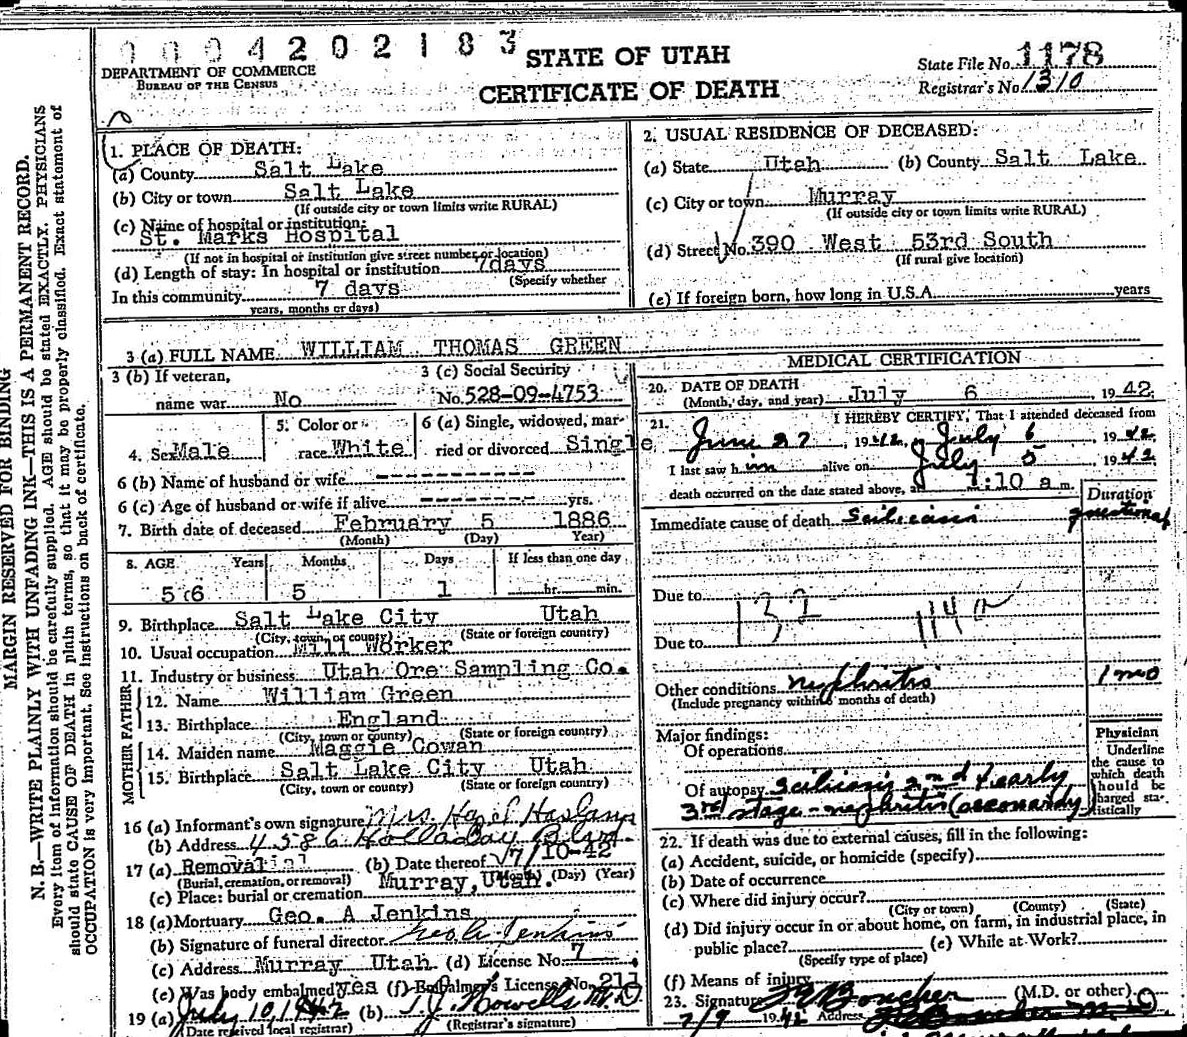 0 0 0 4 2 0 2 1 8 3
STATE OF UTAH
CERTIFICATE OF DEATH
DEPARTMENT OF COMMERCE
BUREAU OF THE CENSUS
State File No. 1178
Registrar's No. 1310
MARGIN RESERVED FOR BINDING
N. B.—WRITE PLAINLY WITH UNFADING INK—THIS IS A PERMANENT RECORD.
Every item of information should be carefully supplied. AGE should be stated EXACTLY. PHYSICIANS
should state CAUSE OF DEATH in plain terms, so that it may be properly classified. Exact statement of
OCCUPATION is very important. See Instructions on back of certificate.
1. PLACE OF DEATH:
(a) County Salt Lake
(b) City or town Salt Lake
(If outside city or town limits write RURAL)
(c) Name of hospital or institution:
St. Marks Hospital
(If not in hospital or institution give street number or location)
(d) Length of stay: In hospital or institution 7days
(Specify whether
In this community 7 days
years, months or days)
2. USUAL RESIDENCE OF DECEASED:
(a) State Utah (b) County Salt Lake
(c) City or town Murray
(If outside city or town limits write RURAL)
(d) Street No. 390 West 53rd South
(If rural give location)
(e) If foreign born, how long in U.S.A. years
3 (a) FULL NAME WILLIAM THOMAS GREEN
3 (b) If veteran,
name war No
3 (c) Social Security
No. 528-09-4753
4. Sex Male
5. Color or
race White
6 (a) Single, widowed, mar-
ried or divorced Single
6 (b) Name of husband or wife
6 (c) Age of husband or wife if alive yrs.
7. Birth date of deceased February 5 1886
(Month) (Day) Year)
8. AGE Years Months Days If less than one day
56 5 1 hr. min.
9. Birthplace Salt Lake City Utah
(City, town, or county) (State or foreign country)
10. Usual occupation Mill Worker
11. Industry or business Utah Ore Sampling Co.
FATHER
12. Name William Green
13. Birthplace England
(City, town or county) (State or foreign country)
MOTHER
14. Maiden name Maggie Cowan
15. Birthplace Salt Lake City Utah
(City, town or county) (State or foreign country)
16 (a) Informant's own signature Mrs. Hazel Haslam
(b) Address 4586 Holladay Blvd
17 (a) Removal (b) Date thereof 7/10-42
(Burial, cremation, or removal) (Month) (Day) (Year)
(c) Place: burial or cremation Murray, Utah.
18 (a) Mortuary Geo. A Jenkins
(b) Signature of funeral director Geo A Jenkins
(c) Address Murray Utah (d) License No. 7
(e) Was body embalmed yes (f) Embalmer's License No. 211
19 (a) July 10, 1942 (b) T. J. Howells M.D
(Date received local registrar) (Registrar's signature)
MEDICAL CERTIFICATION
20. DATE OF DEATH
(Month, day, and year) July 6 , 1942
21. I HEREBY CERTIFY, That I attended deceased from
June 27 , 1942, July 6 , 1942
I last saw him alive on July 5 , 1942
death occurred on the date stated above, at 1:10 a m.
Duration
Immediate cause of death
Due to 132 114a
Due to
Other conditions nephritis 1 mo
(Include pregnancy within 6 months of death)
Major findings:
Of operations
Of autopsy 2nd & early
3rd stage - nephritis (secondary)
Physician
Underline
the cause to
which death
should be
charged sta-
tistically
22. If death was due to external causes, fill in the following:
(a) Accident, suicide, or homicide (specify)
(b) Date of occurrence
(c) Where did injury occur?
(City or town) (County) (State)
(d) Did injury occur in or about home, on farm, in industrial place, in
public place? (e) While at Work?
(Specify type of place)
(f) Means of injury
23. Signature Boucher (M.D. or other)
7/9 1942 Address Boucher M. D